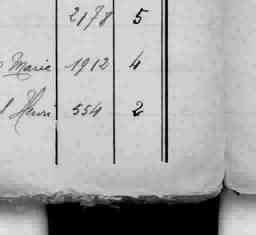 2178 5
Marie 1912 4
Henri 554 2